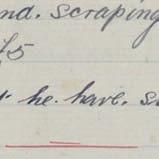 nd. scraping
75
he. have. s